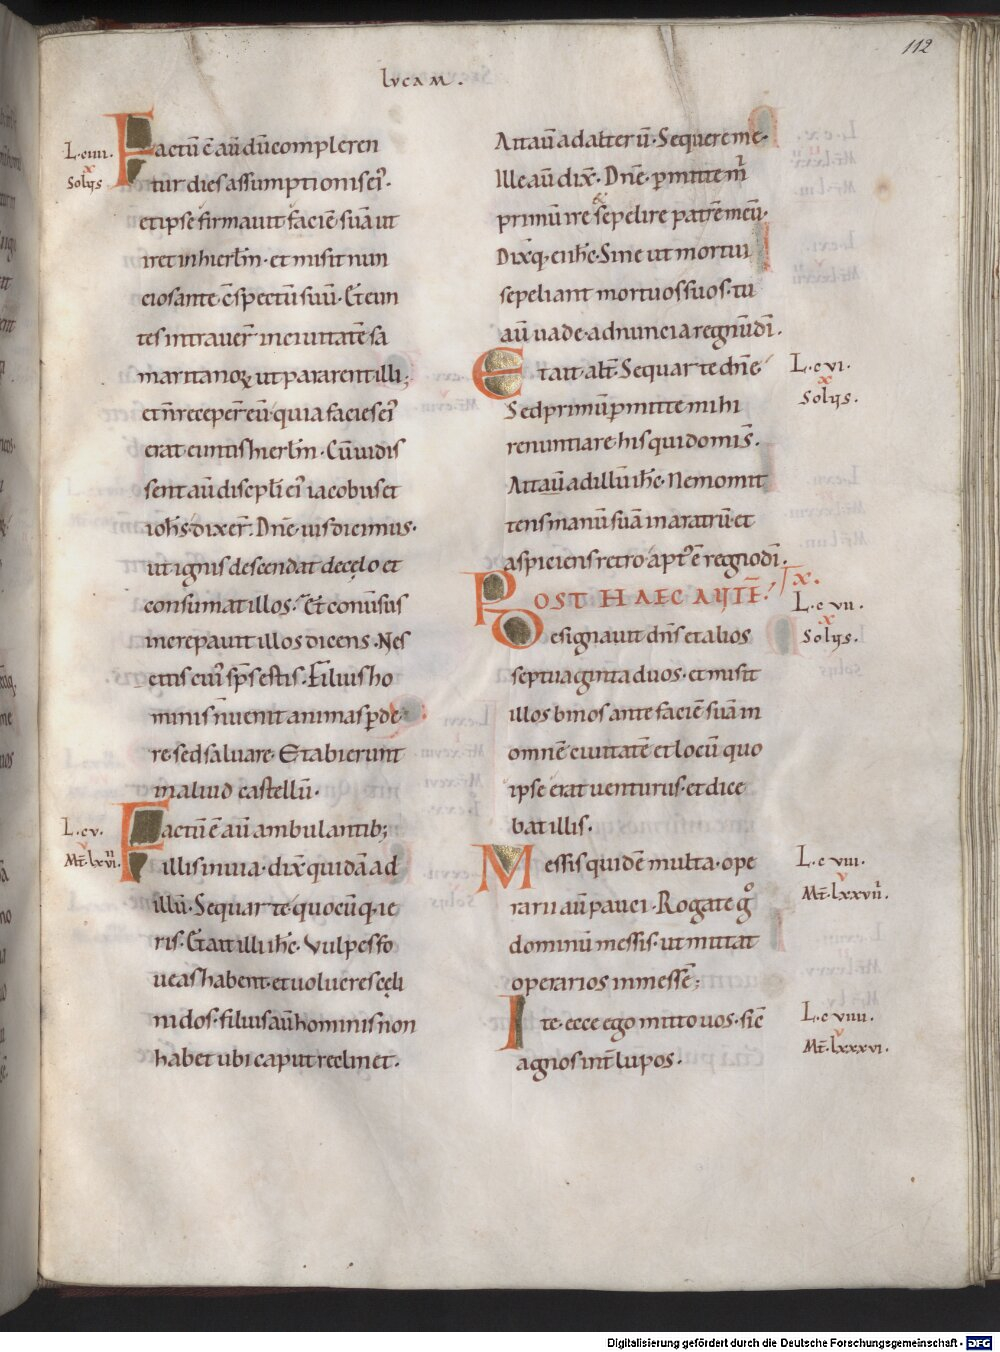 112
lvcam.
L. c iiii.
x
Solus
Factū ē aū dū compleren
tur dies assumptionis ei᾽.
et ipse firmavit faciē suā ut
iret in hierl̄m. et misit nun
cios ante cs̄pectū suū. Et eun
tes intraver̄ in civitatē sa
maritanoꝝ ut pararent illi;
et n̄ receper̄ eū quia facies ei᾽
erat euntis hierl̄m. Cū vidis
sent aū discipl̄i ei᾽ iacobus et
ioh̄s dixer̄. Dn̄e vis dicimus.
ut ignis descendat de cęlo et
consumat illos. Et conv̄sus
increpavit illos dicens. Nes
citis cui᾽ sp̄s estis. Filius ho
minis n̄ venit animas ꝑde
re. sed salvare. Et abierunt
in aliud castellū.
L. cv.
v
Mt̄. lxvi.
Factū ē aū ambulantib;
illis in via. dix̄ quidā ad
illū. Sequar te quocūq; ie
ris. Et ait illi ih̄c. Vulpes fo
veas habent. et volucres cęli
nidos. filius aū hominis non
habet ubi caput reclinet.
Ait aū ad alterū. Sequere me.
Ille aū dix̄. Dn̄e ꝑmitte m̄
primū ire & sepelire patrē meū.
Dixq; ei ih̄c. Sine ut mortui
sepeliant mortuos suos. tu
aū vade. adnuncia regnū dī.
Et ait alt̄. Sequar te dn̄e
L. c vi.
x
Solus.
Sed primū ꝑmitte mihi
renuntiare his qui domi s̄.
Ait aū ad illū ih̄c. Nemo mit
tens manū suā in aratrū et
aspiciens retro. apt᾽ ē regno dī.
POST HAEC AUTĒ.
x.
L. c vii.
x
Solus.
Designavit dn̄s et alios
septuaginta duos. et misit
illos binos ante faciē suā in
omnē civitatē et locū quo
ipse erat venturus. et dice
bat illis.
Messis quidē multa. ope
L. c viii.
v
Mt̄. lxxviii.
rarii aū pauci. Rogate gͦ
dominū messis. ut mittat
operarios in messē;
Ite. ecce ego mitto vos. sic̄
L. c viiii.
v
Mt̄. lxxxvi.
agnos int̄ lupos.
Digitalisierung gefördert durch die Deutsche Forschungsgemeinschaft - DFG